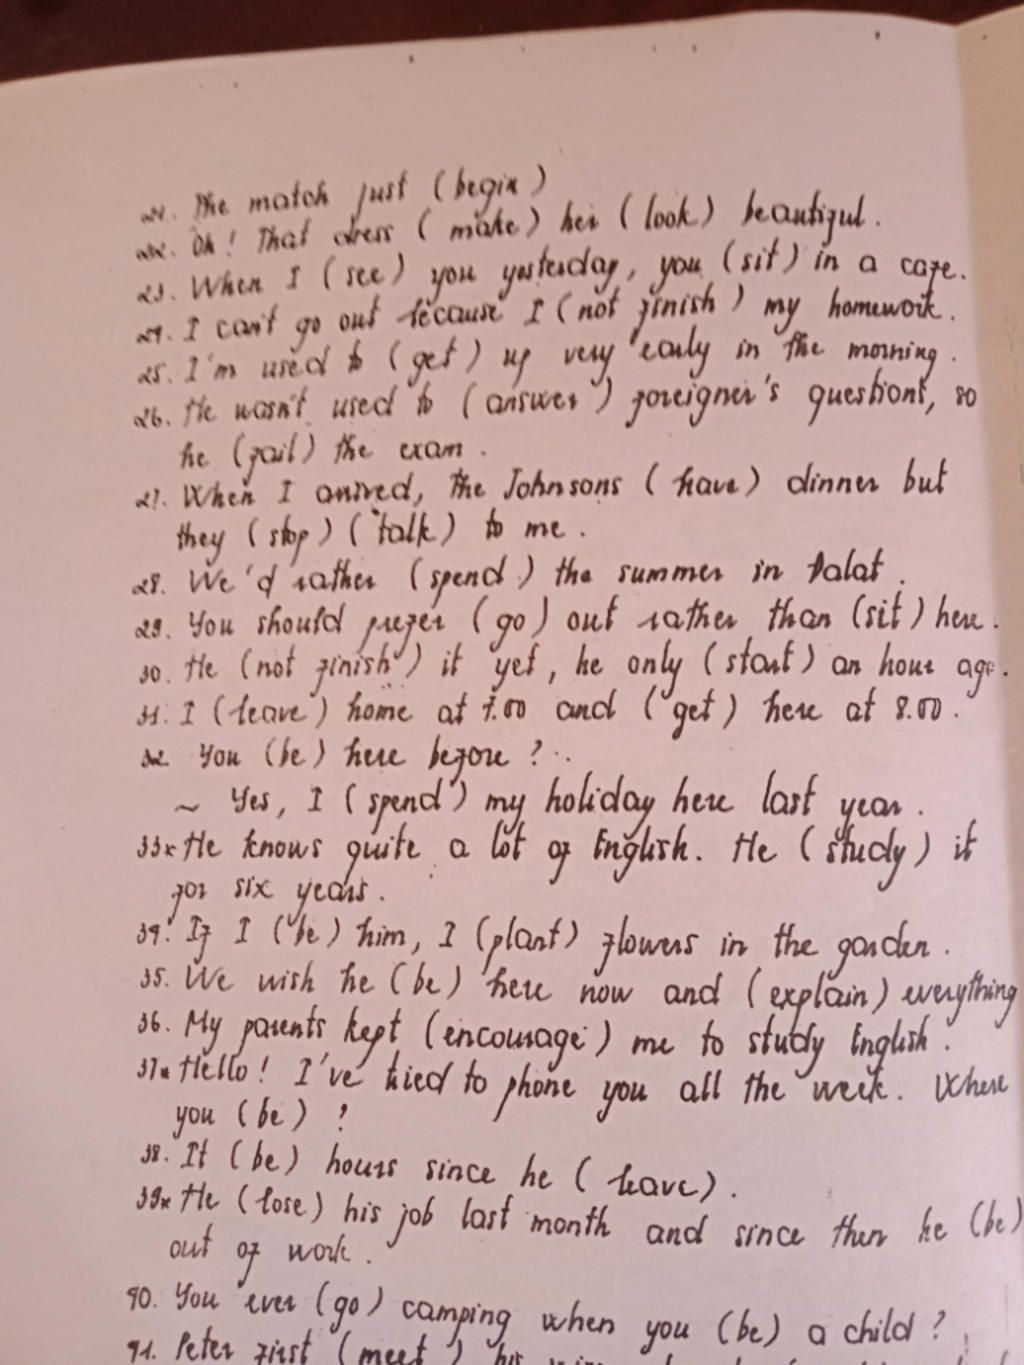 21. The match just (begin)
22. Oh! That dress (make) her (look) beautiful.
23. When I (see) you yesterday, you (sit) in a cafe.
24. I can't go out because I (not finish) my homework.
25. I'm used to (get) up very early in the morning.
26. He wasn't used to (answer) foreigner's questions, so
he (fail) the exam.
27. When I arrived, the Johnsons (have) dinner but
they (stop) (talk) to me.
28. We'd rather (spend) the summer in Dalat.
29. You should prefer (go) out rather than (sit) here.
30. He (not finish) it yet, he only (start) an hour ago.
31. I (leave) home at 7.00 and (get) here at 8.00.
32. You (be) here before?
~ Yes, I (spend) my holiday here last year.
33* He knows quite a lot of English. He (study) it
for six years.
34. If I (be) him, I (plant) flowers in the garden.
35. We wish he (be) here now and (explain) everything
36. My parents kept (encourage) me to study English.
37* Hello! I've tried to phone you all the week. Where
you (be)?
38. It (be) hours since he (leave).
39* He (lose) his job last month and since then he (be)
out of work.
40. You ever (go) camping when you (be) a child?
41. Peter first (meet) his